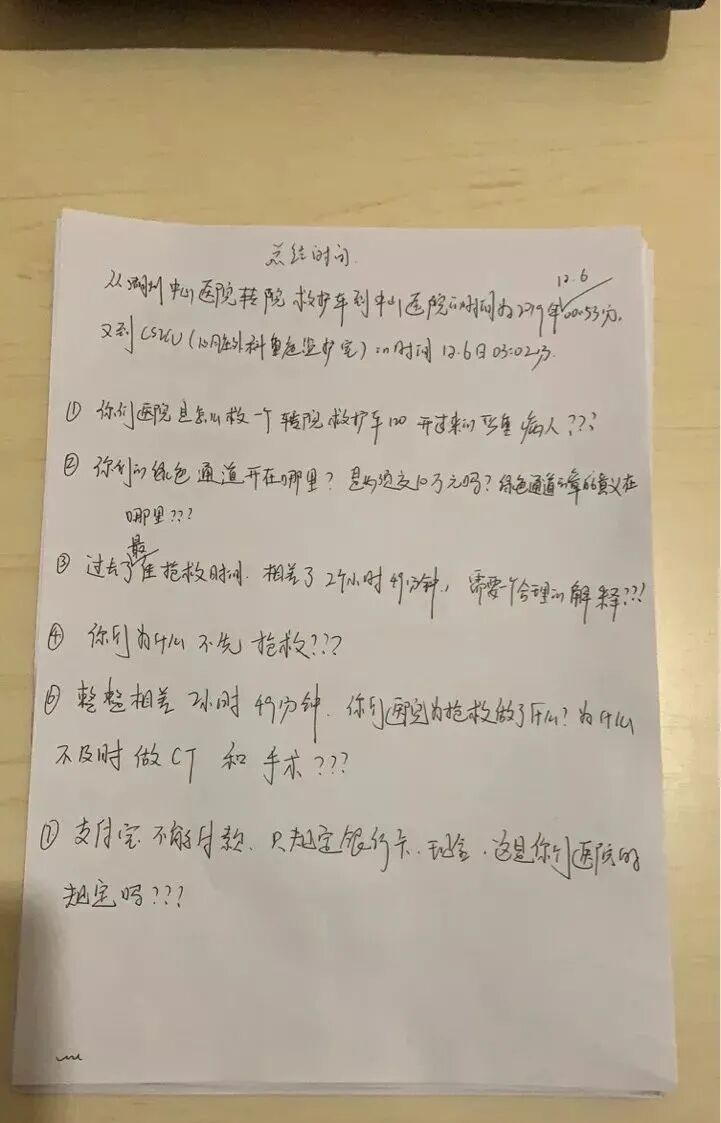 总结时间.
12.6
从湖州中心医院转院救护车到中山医院的时间为2019年00:53分.
又到CSICU(心脏外科重症监护室)的时间12.6日03:02分.
① 你们医院是怎么救一个转院救护车120开过来的严重病人???
② 你们的绿色通道开在哪里?是必须交10万元吗?绿色通道的意义在
哪里???
最
③ 过去了佳抢救时间.相差了2个小时49分钟,需要一个合理的解释???
④ 你们为什么不先抢救???
整整相差2小时49分钟.你们医院为抢救做了什么?为什么
不及时做CT和手术???
支付宝不能付款.只规定银行卡.现金.这是你们医院的
规定吗???